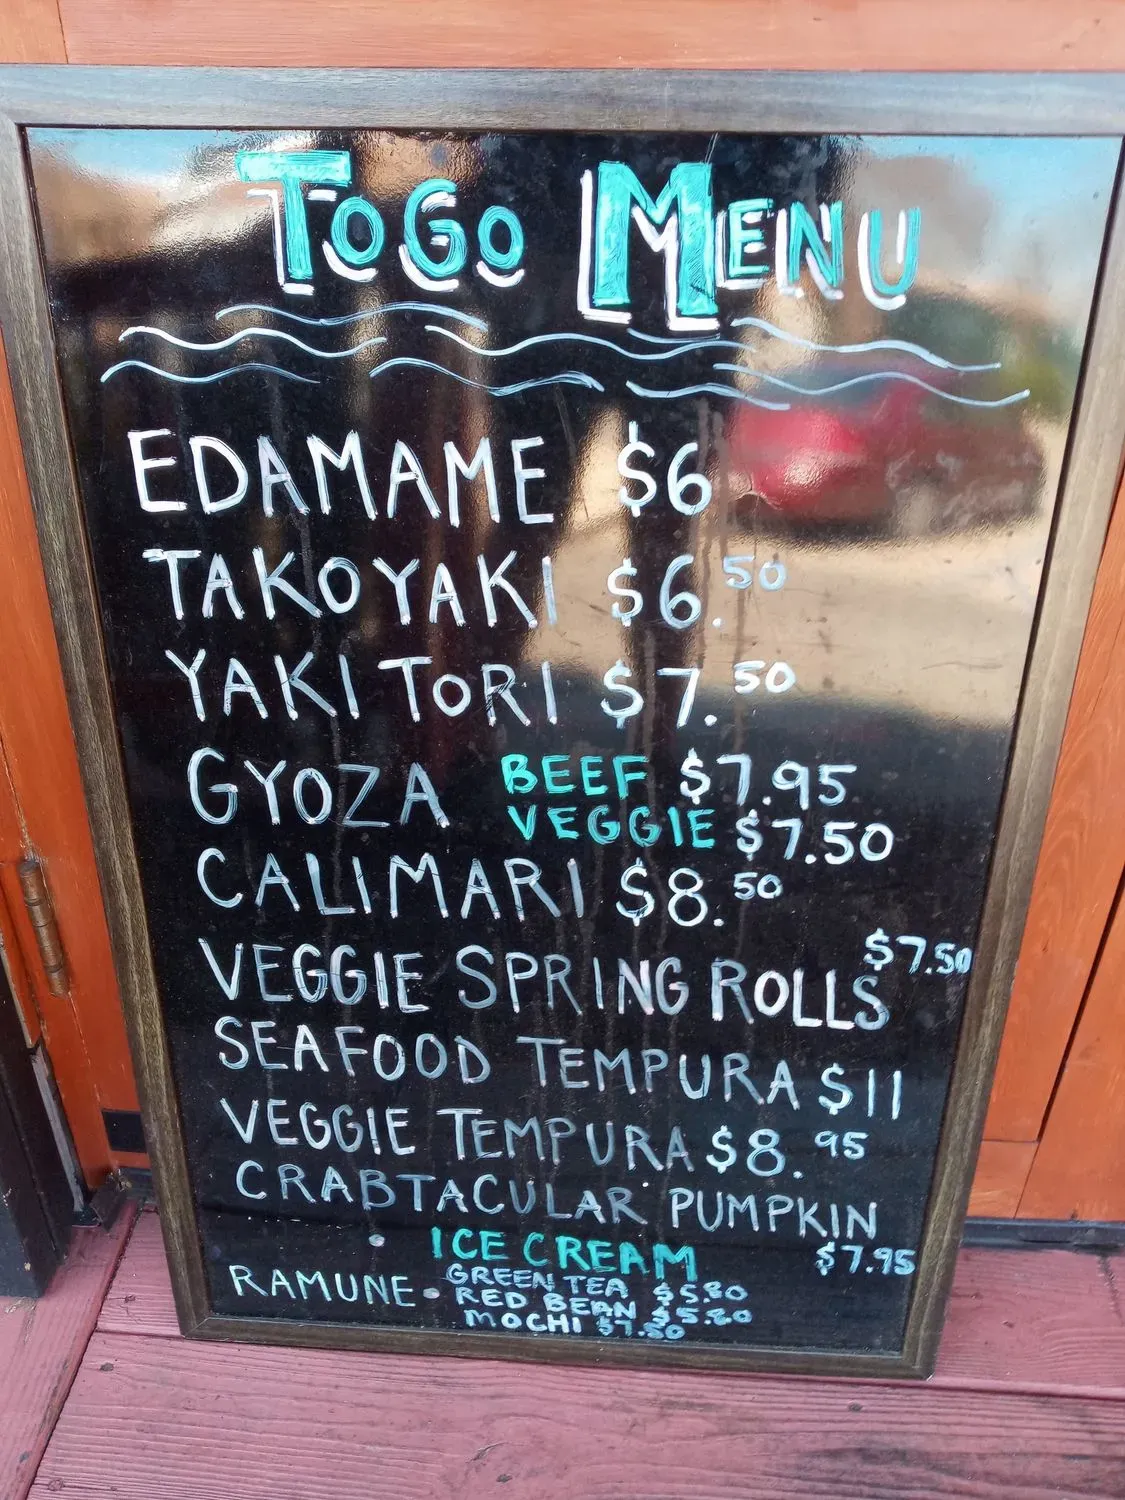 TOGO MENU
EDAMAME $6
TAKOYAKI $6.50
YAKI TORI $7.50
GYOZA BEEF $7.95
VEGGIE $7.50
CALIMARI $8.50
VEGGIE SPRING ROLLS $7.50
SEAFOOD TEMPURA $11
VEGGIE TEMPURA $8.95
CRABTACULAR PUMPKIN
$7.95
• ICE CREAM
RAMUNE • GREEN TEA $5.80
RED BEAN $5.80
MOCHI $7.50